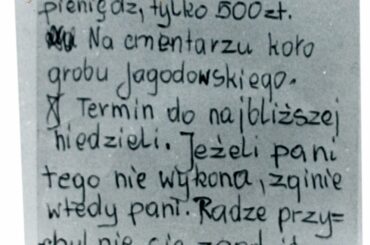 pieniędz, tylko 500 zł.
Na cmentarzu koło
grobu Jagodowskiego.
Termin do najbliższej
niedzieli. Jeżeli pani
tego nie wykona, zginie
wtedy pani. Radze przy=